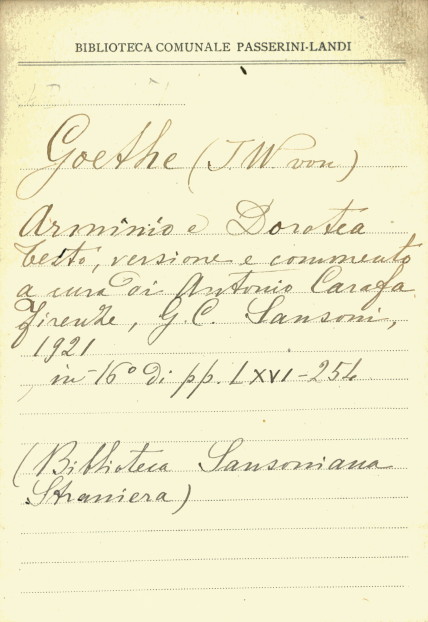 BIBLIOTECA COMUNALE PASSERINI-LANDI
Goethe (J. W. von)
Arminio e Dorotea
testo, versione e commento
a cura di Antonio Carafa
Firenze, G. C. Sansoni,
1921
in-16º di pp. LXVI-254
(Biblioteca Sansoniana
Straniera)